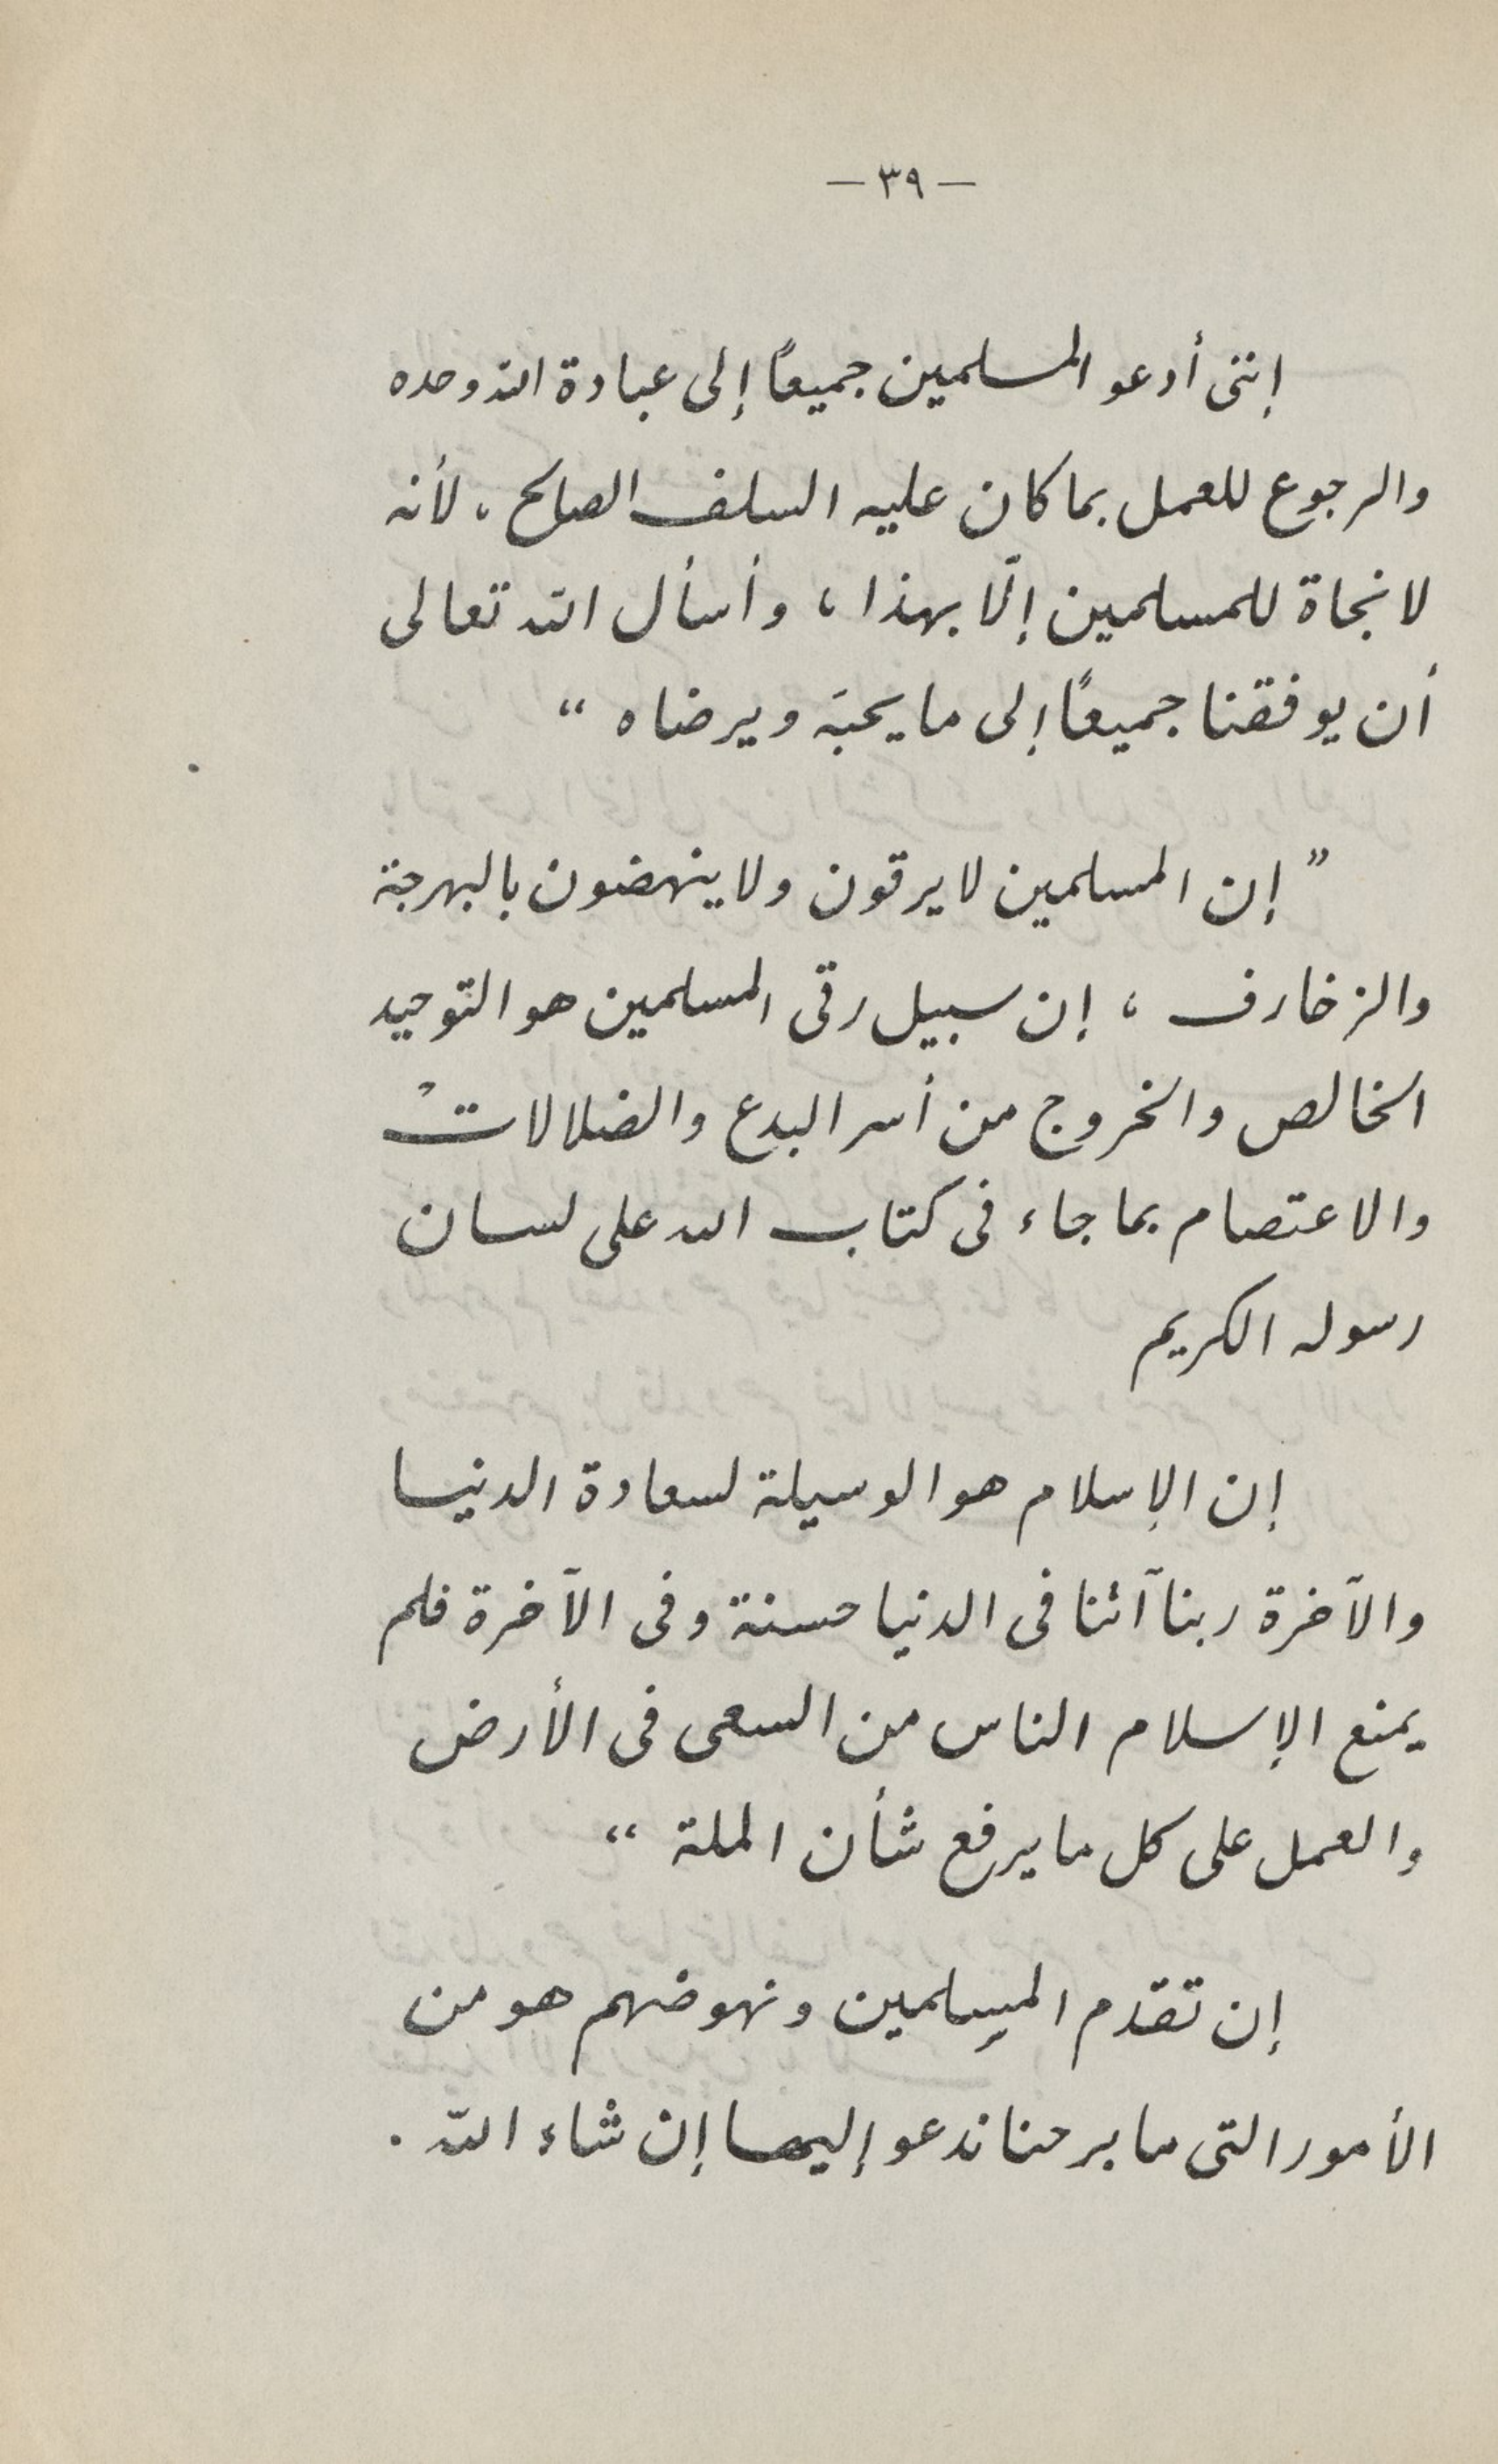 — ٣٩ —
إننى أدعو المسلمين جميعًا إلى عبادة الله وحده
والرجوع للعمل بما كان عليه السلف الصالح ، لأنه
لا نجاة للمسلمين إلّا بهذا ، وأسأل الله تعالى
أن يوفقنا جميعًا إلى ما يحبَه ويرضاه “
” إن المسلمين لا يرقون ولا ينهضون بالبهرجة
والزخارف ، إن سبيل رقى المسلمين هو التوحيد
الخالص والخروج من أسر البدع والضلالات
والاعتصام بما جاء فى كتاب الله على لسان
رسوله الكريم
إن الإسلام هو الوسيلة لسعادة الدنيا
والآخرة ربنا آتنا فى الدنيا حسنة وفى الآخرة فلم
يمنع الإسلام الناس من السعى فى الأرض
والعمل على كل ما يرفع شأن الملة “
إن تقدم المسلمين ونهوضهم هو من
الأمور التى ما برحنا ندعو إليها إن شاء اللّه .